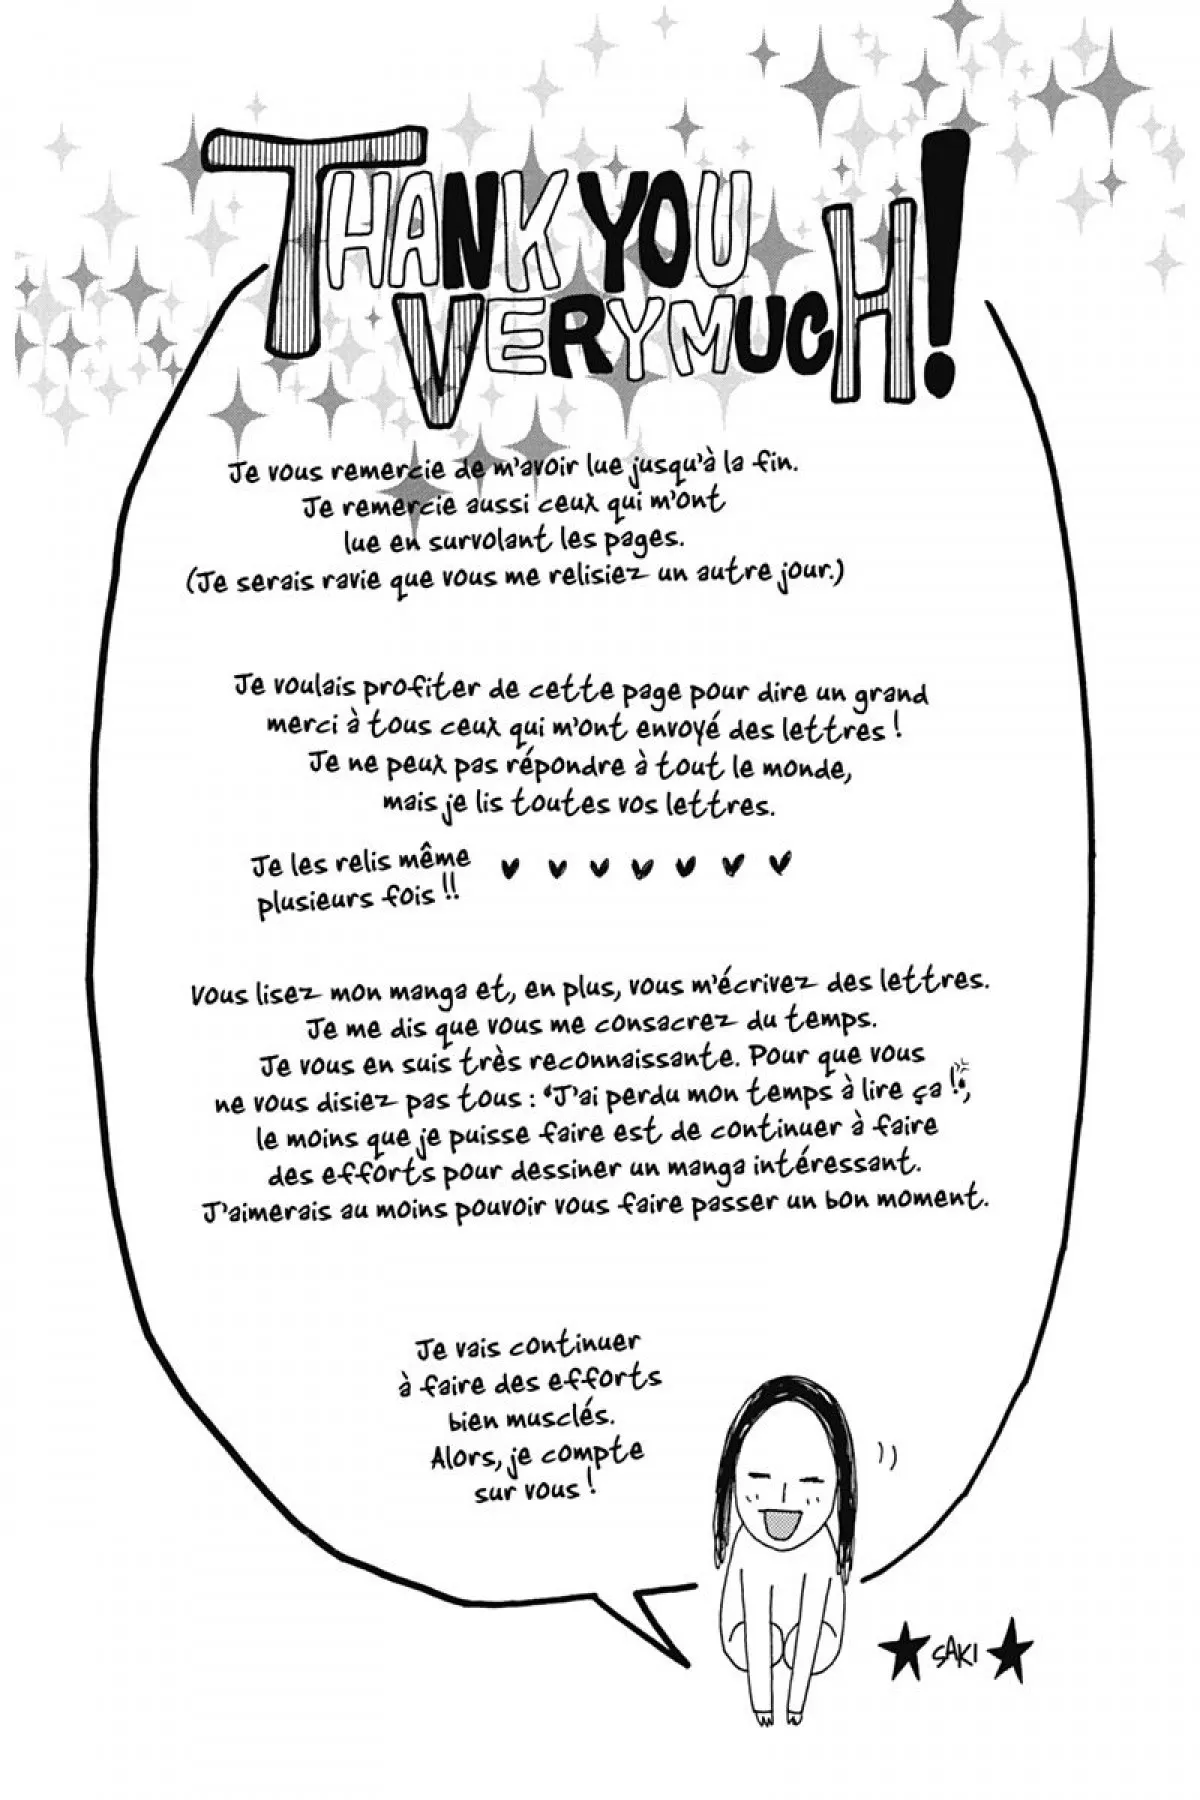 THANK YOU
VERY MUCH!
Je vous remercie de m'avoir lue jusqu'à la fin.
Je remercie aussi ceux qui m'ont
lue en survolant les pages.
(Je serais ravie que vous me relisiez un autre jour.)
Je voulais profiter de cette page pour dire un grand
merci à tous ceux qui m'ont envoyé des lettres !
Je ne peux pas répondre à tout le monde,
mais je lis toutes vos lettres.
Je les relis même
plusieurs fois !!
Vous lisez mon manga et, en plus, vous m'écrivez des lettres.
Je me dis que vous me consacrez du temps.
Je vous en suis très reconnaissante. Pour que vous
ne vous disiez pas tous : "J'ai perdu mon temps à lire ça !",
le moins que je puisse faire est de continuer à faire
des efforts pour dessiner un manga intéressant.
J'aimerais au moins pouvoir vous faire passer un bon moment.
Je vais continuer
à faire des efforts
bien musclés.
Alors, je compte
sur vous !
★ SAKI ★